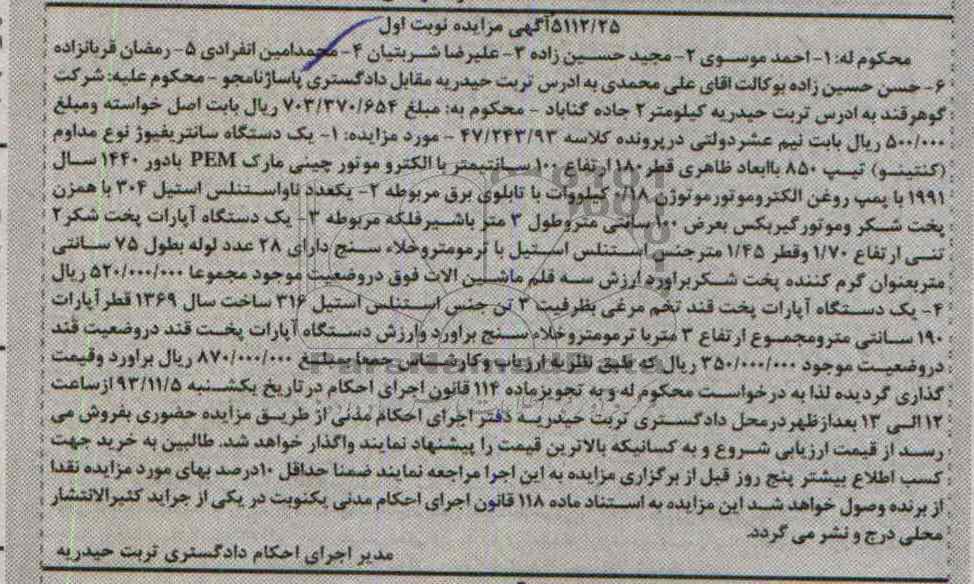 ۵۱۱۲/۲۵آگهی مزایده نوبت اول
محکوم له: ۱- احمد موسوی ۲- مجید حسین زاده ۳- علیرضا شربتیان ۴- محمدامین انفرادی ۵- رمضان قربانزاده
۶- حسن حسین زاده بوکالت اقای علی محمدی به ادرس تربت حیدریه مقابل دادگستری پاساژنامجو - محکوم علیه: شرکت
گوهرقند به ادرس تربت حیدریه کیلومتر۲ جاده گناباد - محکوم به: مبلغ ۷۰۳/۳۷۰/۶۵۴ ریال بابت اصل خواسته ومبلغ
۵۰۰/۰۰۰ ریال بابت نیم عشردولتی درپرونده کلاسه ۴۷/۲۴۳/۹۳ - مورد مزایده: ۱- یک دستگاه سانتریفیوژ نوع مداوم
(کنتینو) تیپ ۸۵۰ باابعاد ظاهری قطر۱۸۰ارتفاع ۱۰۰ سانتیمتر با الکترو موتور چینی مارک PEM بادور ۱۴۴۰ سال
۱۹۹۱ با پمپ روغن الکتروموتورموتوژن ۰/۱۸ کیلووات با تابلوی برق مربوطه ۲- یکعدد ناواستنلس استیل ۳۰۴ با همزن
پخت شکر وموتورگیربکس بعرض ۱۰۰سانتی متروطول ۳ متر باشیرفلکه مربوطه ۳- یک دستگاه آپارات پخت شکر۲
تنی ارتفاع ۱/۷۰ وقطر ۱/۴۵ مترجنس استنلس استیل با ترمومتروخلاء سنج دارای ۲۸ عدد لوله بطول ۷۵ سانتی
متربعنوان گرم کننده پخت شکربراورد ارزش سه قلم ماشین الات فوق دروضعیت موجود مجموعا ۵۲۰/۰۰۰/۰۰۰ ریال
۴- یک دستگاه آپارات پخت قند تخم مرغی بظرفیت ۳ تن جنس استنلس استیل ۳۱۶ ساخت سال ۱۳۶۹ قطرآپارات
۱۹۰ سانتی مترومجموع ارتفاع ۳ متربا ترمومتروخلاء سنج براورد وارزش دستگاه آپارات پخت قند دروضعیت قند
دروضعیت موجود ۳۵۰/۰۰۰/۰۰۰ ریال که طبق نظریه ارزیاب وکارشناس جمعا بمبلغ ۸۷۰/۰۰۰/۰۰۰ ریال براورد وقیمت
گذاری گردیده لذا به درخواست محکوم له و به تجویزماده ۱۱۴ قانون اجرای احکام درتاریخ یکشنبه ۹۳/۱۱/۵ ازساعت
۱۲ الی ۱۳ بعدازظهر درمحل دادگستری تربت حیدریه دفتر اجرای احکام مدنی از طریق مزایده حضوری بفروش می
رسد از قیمت ارزیابی شروع و به کسانیکه بالاترین قیمت را پیشنهاد نمایند واگذار خواهد شد. طالبین به خرید جهت
کسب اطلاع بیشتر پنج روز قبل از برگزاری مزایده به این اجرا مراجعه نمایند ضمنا حداقل ۱۰درصد بهای مورد مزایده نقدا
از برنده وصول خواهد شد این مزایده به استناد ماده ۱۱۸ قانون اجرای احکام مدنی یکنوبت در یکی از جراید کثیرالانتشار
محلی درج و نشر می گردد.
مدیر اجرای احکام دادگستری تربت حیدریه